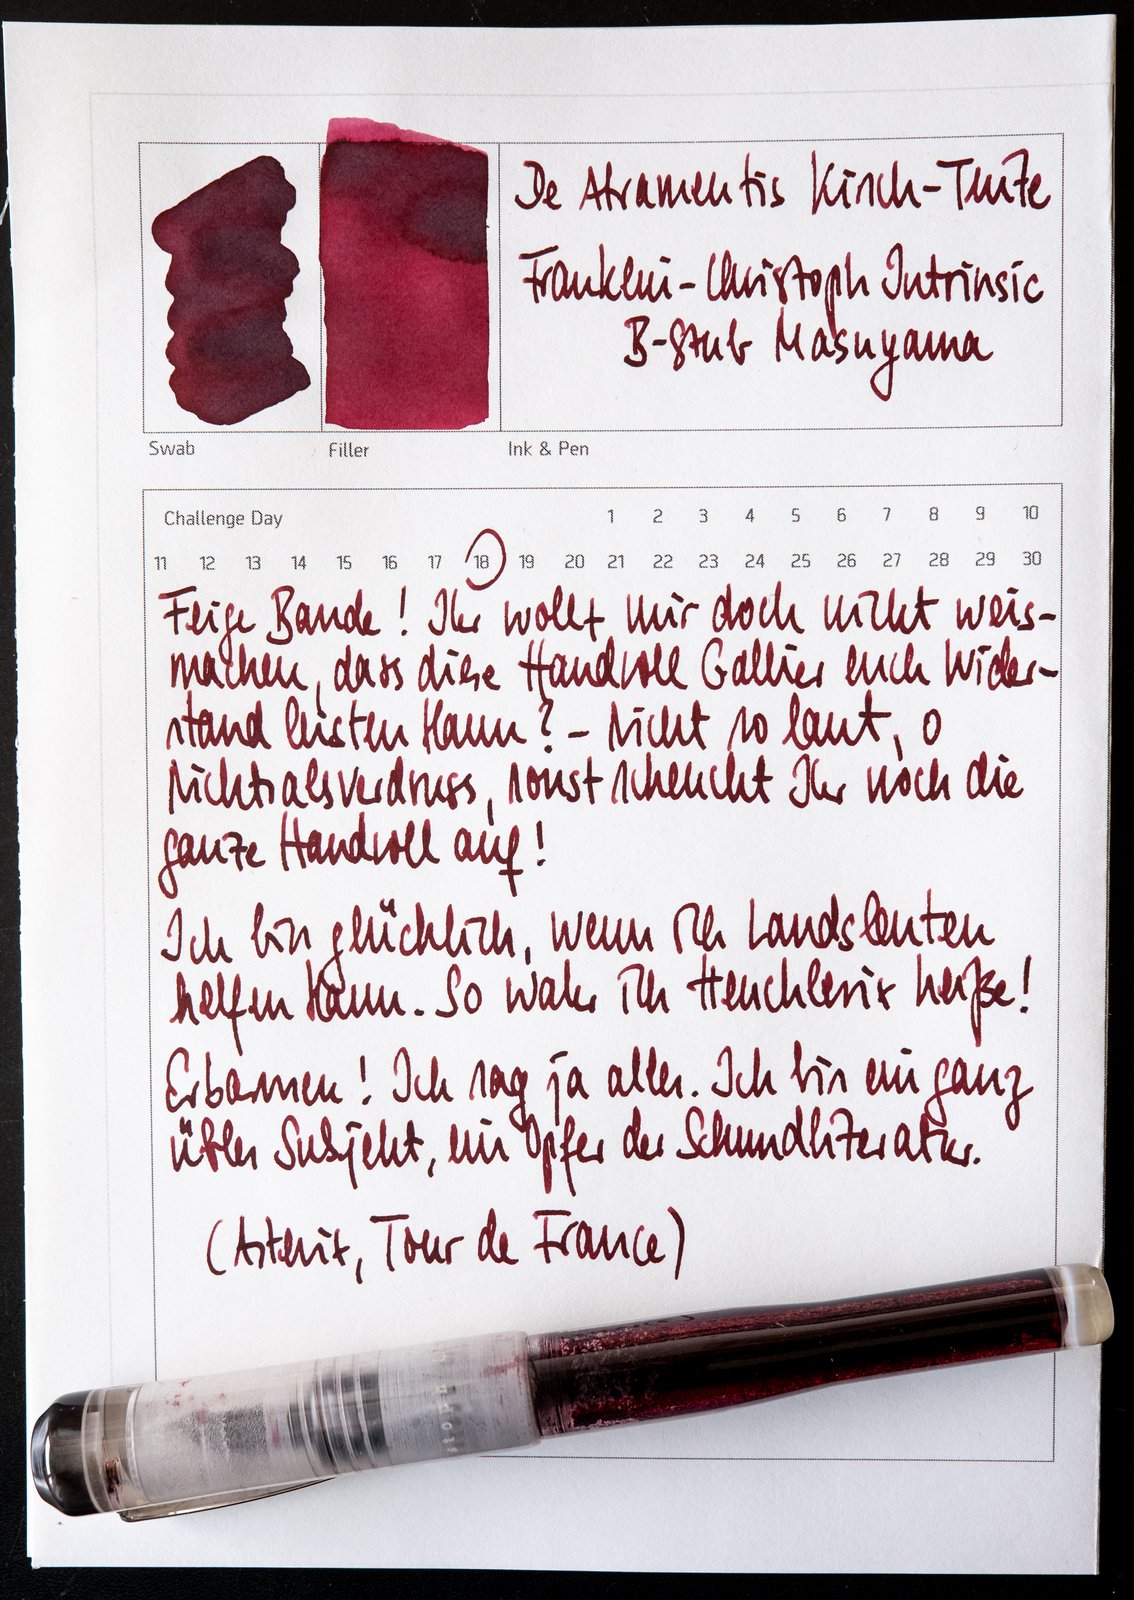 De Atramentis Kirsch-Tinte
Franklin-Christoph Intrinsic
B-Stub Masuyama
Swab Filler Ink & Pen
Challenge Day 1 2 3 4 5 6 7 8 9 10
11 12 13 14 15 16 17 18 19 20 21 22 23 24 25 26 27 28 29 30
Feige Bande! Ihr wollt mir doch nicht weis-
machen, dass diese Handvoll Gallier euch Wider-
stand leisten kann? - Nicht so laut, o
Nichtsalsverdruss, sonst scheucht Ihr noch die
ganze Handvoll auf!
Ich bin glücklich, wenn ich Landsleuten
helfen kann. So wahr ich Henchlerix heiße!
Erbarmen! Ich sag ja alles. Ich bin ein ganz
übles Subjekt, ein Opfer der Schundliteratur.
(Asterix, Tour de France)